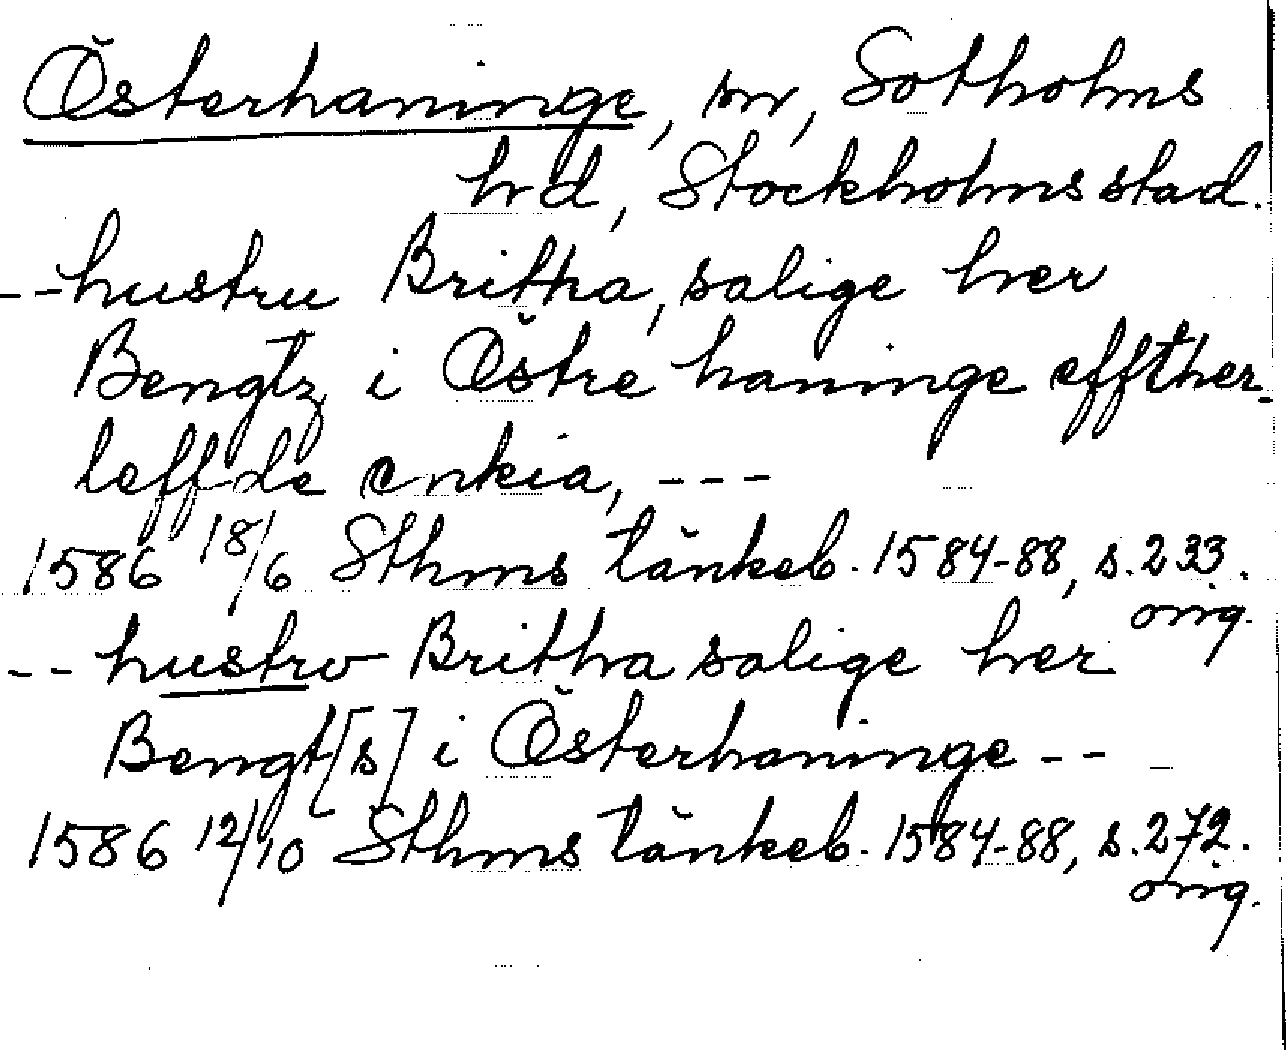 Österhaninge, sn, Sotholms
hd, Stockholms stad.
-- hustru Britha, salige her
Bengtz i Östre haninge effther-
leffde enkia, ---
1586 18/6 Sthms tänkeb. 1584-88, s. 233.
orig.
-- hustrv Britha salige her
Bengt[s] i Österhaninge --
1586 12/10 Sthms tänkeb. 1584-88, s. 272.
orig.